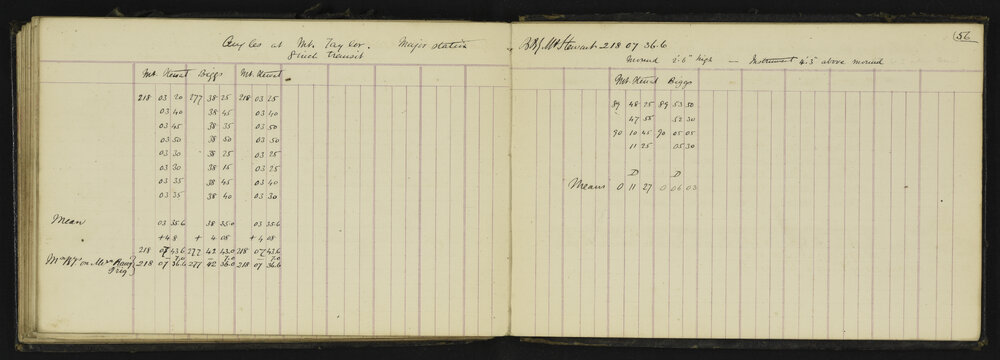 Angles at Mt. Taylor. Major station
8 inch transit
Mt. Stewart Biggs Mt. Stewart
218 03 20 277 38 25 218 03 25
03 40 38 45 03 40
03 45 38 35 03 50
03 50 38 50 03 50
03 30 38 25 03 25
03 30 38 15 03 25
03 35 38 45 03 40
03 35 38 40 03 30
Mean 03 35.6 38 35.0 03 35.6
+ 4 8 + 4 08 + 4 08
218 07 43.6 277 42 43.0 218 07 43.6
7.0 7.0 7.0
218 07 36.6 277 42 36.0 218 07 36.6
Mt Stewart 218 07 36.6
56
Mound 2'-6" high — Instrument 4'.3" above mound
Mt. Stewart Biggs
89 48 25 89 53 50
47 55 52 30
90 10 45 90 05 05
11 25 05 30
D D
Means 0 11 27 0 06 03